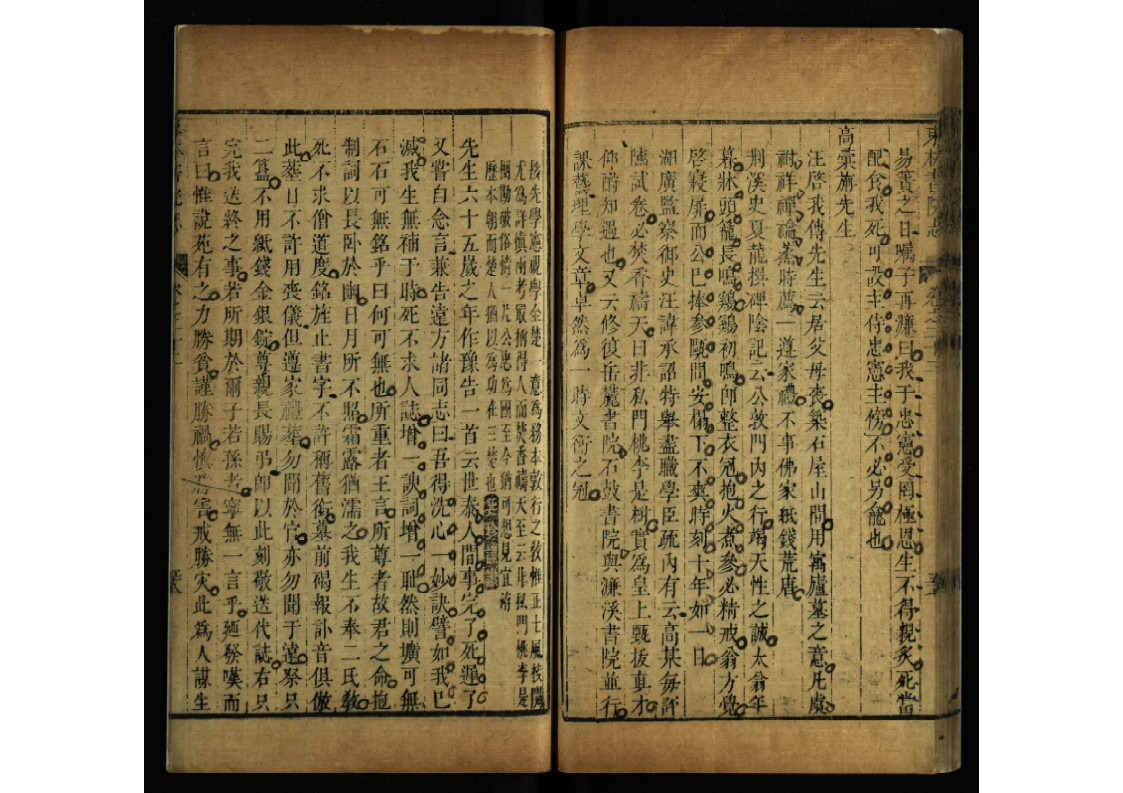 易簀之日囑子再濂曰我于忠憲受罔極恩生不得親炙死當
配食我死可設主侍忠憲主傍不必另龕也
高彚旃先生
汪啓我傳先生云居父母喪築石屋山間用寓廬墓之意凡虞
祔祥禫禴烝時薦一遵家禮不事佛家紙錢荒唐
荆溪史夏龍撰碑陰記云公敦門內之行竭天性之誠太翁年
暮牀頭籠長鳴鷄鷄初鳴卽整衣冠抱火煮參必精戒翁方覺
啓寢扉而公巳捧參甌問安榻下不爽時刻十年如一日
湖廣監察御史汪諱承詔特舉盡職學臣疏內有云高某每評
隲試卷必焚香禱天曰非私門桃李是樹實爲皇上甄拔眞才
仰酧知遇也又云修復岳麓書院石鼓書院與濂溪書院並行
課藝理學文章卓然爲一時文衡之冠
按先學憲視學全楚一意爲務本敦行之敎惟正士風校閱
尤爲詳愼南考最稱得人而焚香禱天至云非私門桃李是
樹勘破俗情一片公忠爲國至今猶可想見宜諸
歷本朝而楚人猶以爲功在三楚也
先生六十五歲之年作豫告一首云世泰人間事完了死遲了
又嘗自念言兼告遠方諸同志曰吾得洗心一妙訣譬如我巳
滅我生無補于時死不求人誌增一諛詞增一耻然則壙可無
石石可無銘乎曰何可無也所重者王言所尊者故君之命抱
制詞以長卧於幽日月所不照霜露猶濡之我生不奉二氏敎
死不求僧道度銘旌止書字不許稱舊銜墓前碣報訃音俱倣
此塟日不許用喪儀但遵家禮塟勿聞於官亦勿聞于遠祭只
二簋不用紙錢金銀錠尊親長賜弔卽以此刻敬送代誌右只
完我送終之事若所期於爾子若孫者寧無一言乎廼發嘆而
言曰惟說苑有之力勝貧謹勝禍愼勝害戒勝灾此爲人謀生